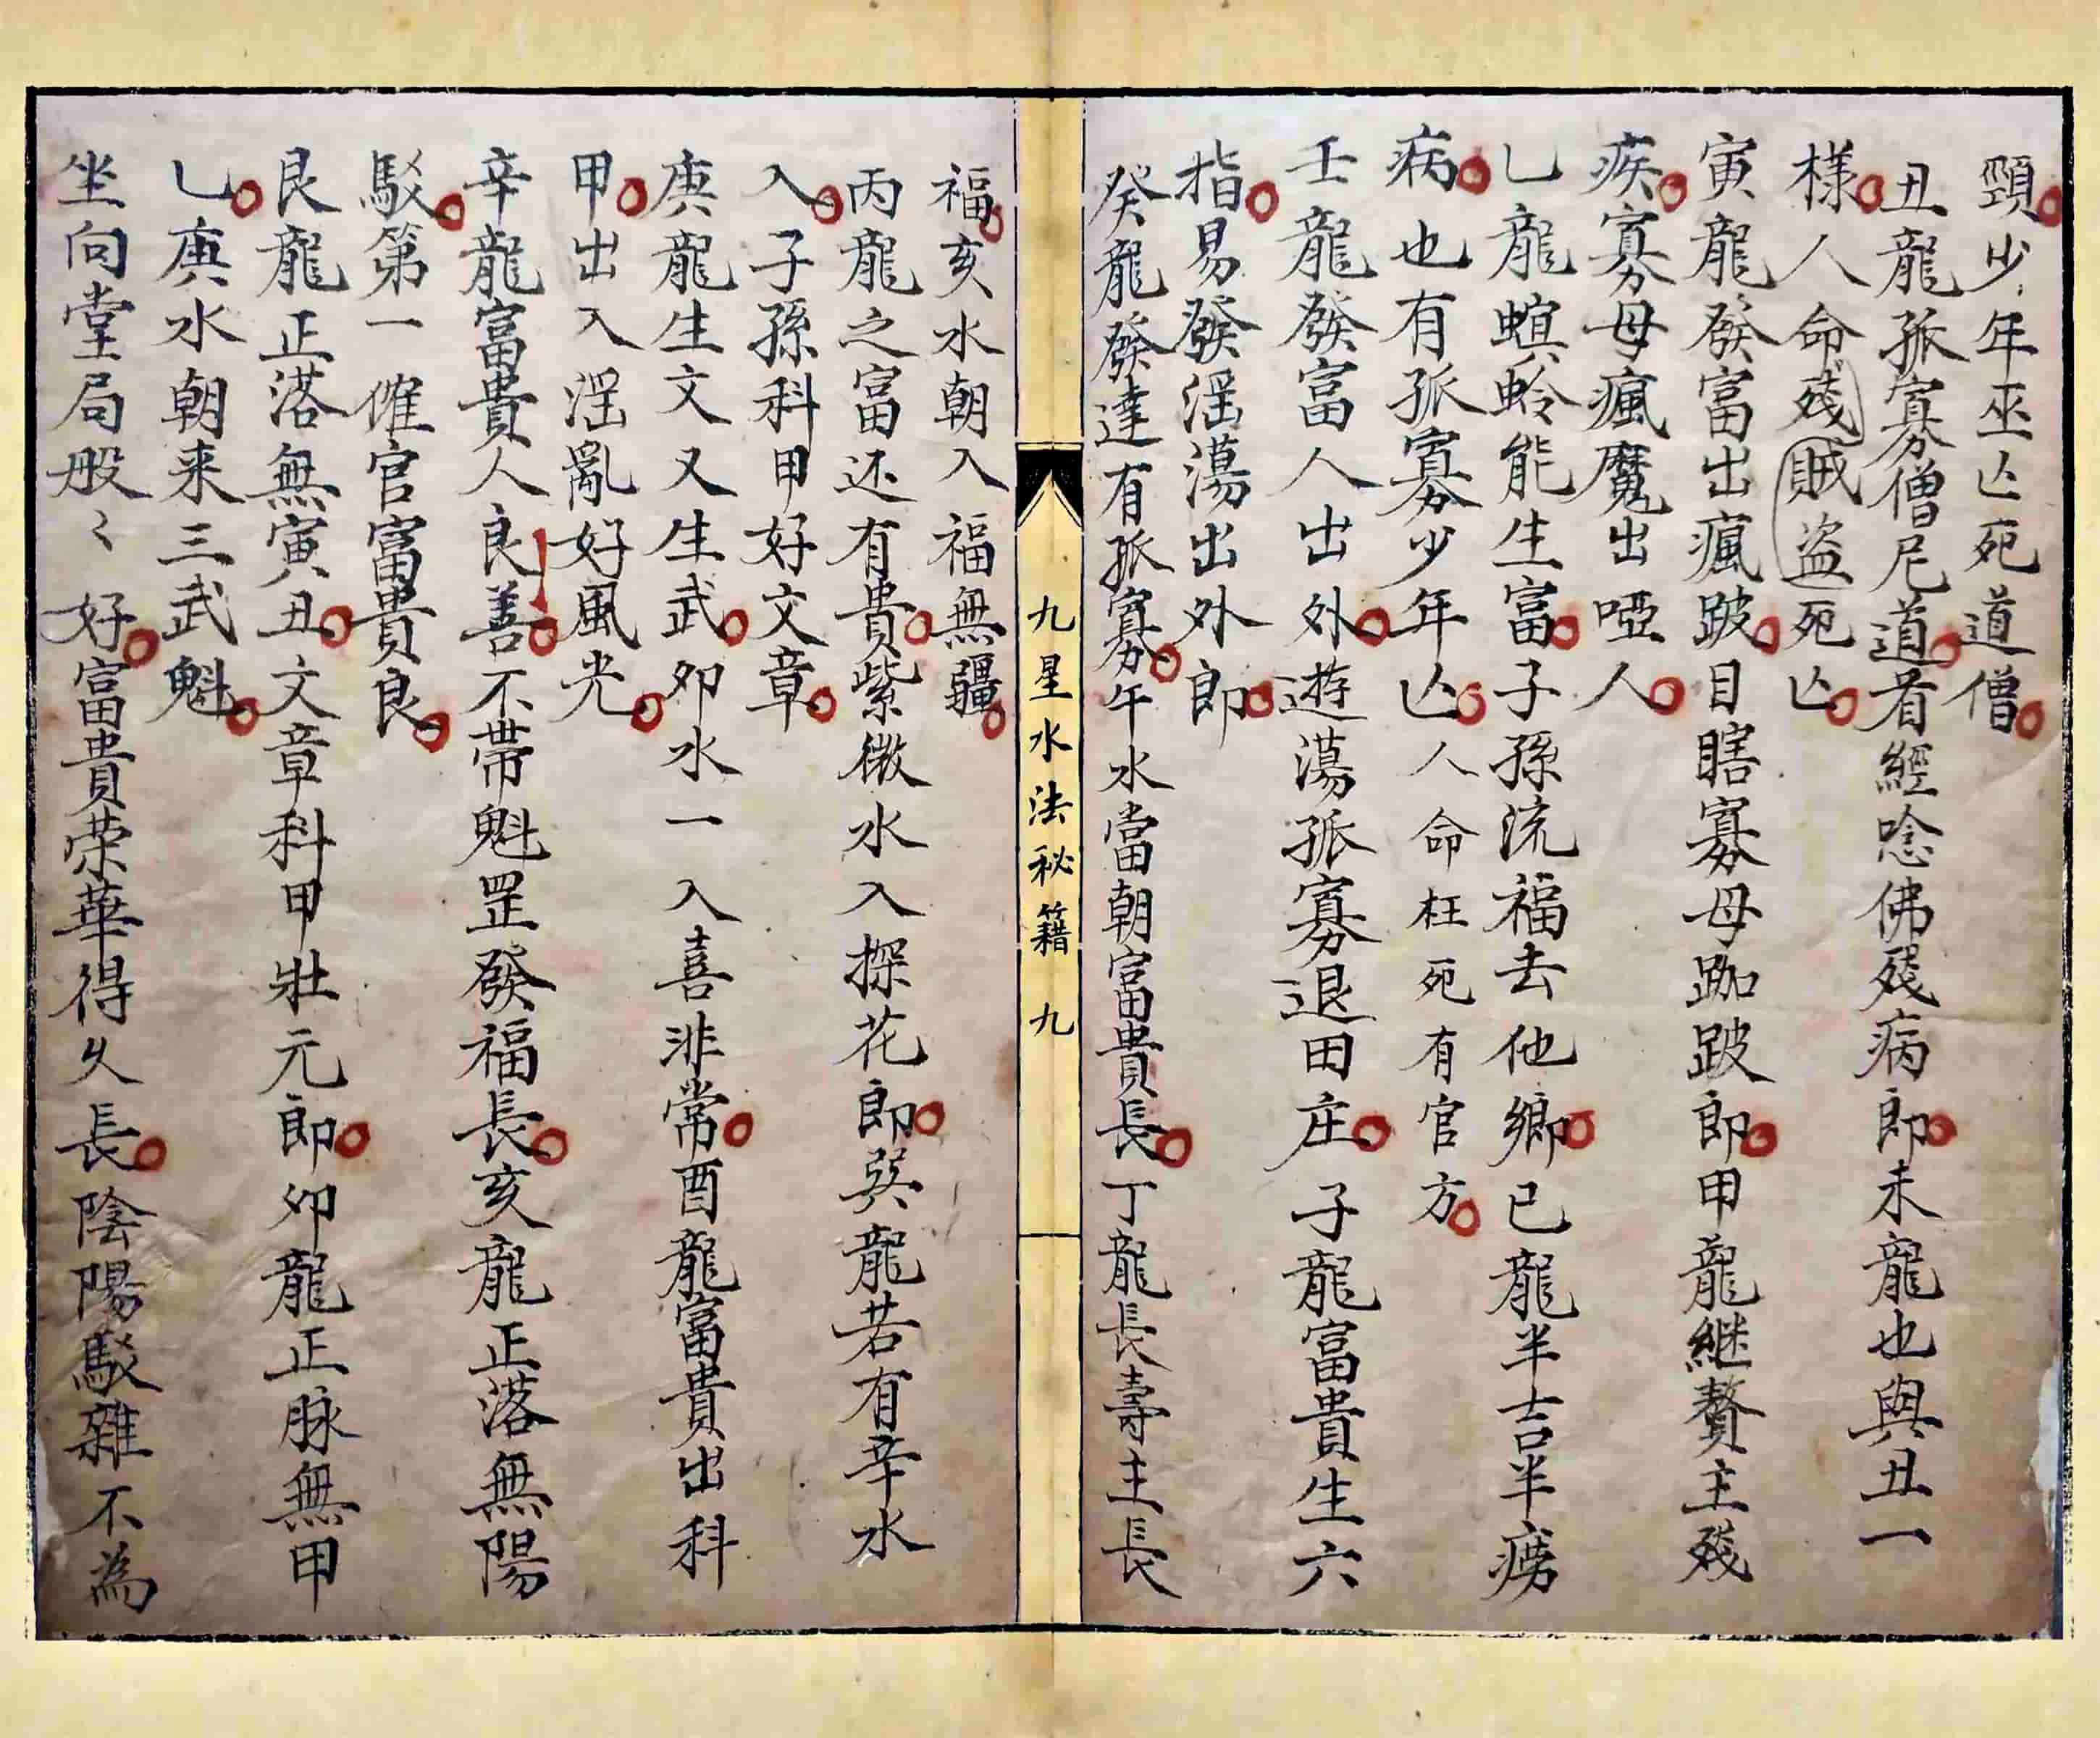 頸少年巫亡死道僧
丑龍孤寡僧尼道看經唸佛殘病郎未龍也與丑一
樣人命殘賊盜死亡
寅龍發富出瘋跛目瞎寡母跏跛郎甲龍継贅主殘
疾寡母瘋魔出啞人
乚龍螟蛉能生富子孫流福去他鄉已龍半吉半癆
病也有孤寡少年亡人命枉死有官方
壬龍發富人出外遊蕩孤寡退田庄子龍富貴生六
指易發滛蕩出外郎
癸龍發達有孤寡午水當朝富貴長丁龍長壽主長
九星水法秘籍 九
福亥水朝入福無疆
丙龍之富还有貴紫微水入探花郎巽龍若有辛水
入子孫科甲好文章
庚龍生文又生武卯水一入喜非常酉龍富貴出科
甲出入滛亂好風光
辛龍富貴人良善不帶魁罡發福長亥龍正落無陽
駁第一催官富貴良
艮龍正落無寅丑文章科甲壯元郎卯龍正脉無甲
乚庚水朝来三武魁
坐向堂局般〻好富貴荣華得久長陰陽駁雜不為